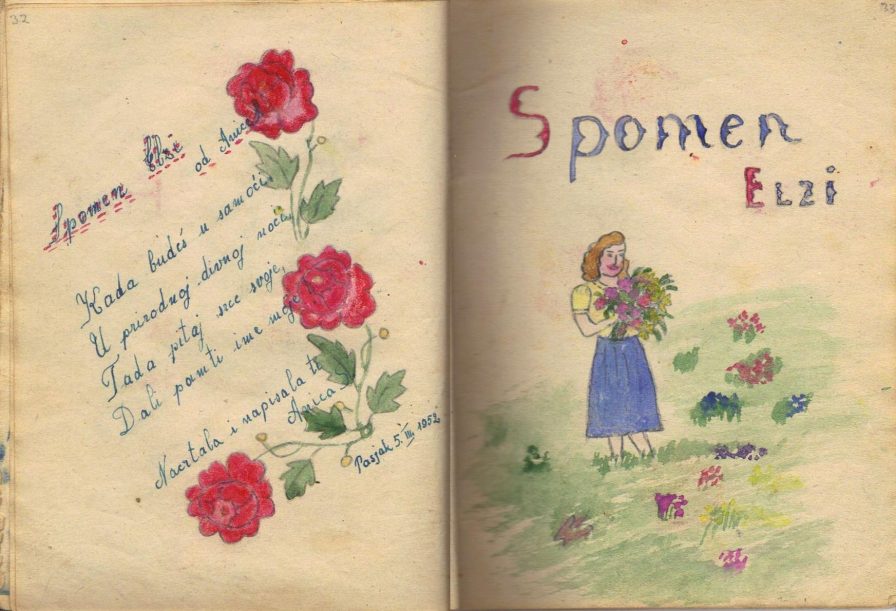 32
Spomen Elzi
od Anice
Kada budeš u samoći
U prirodnoj divnoj noći,
Tada pitaj srce svoje,
Dali pamti ime moje
Nacrtala i napisala ti
Anica
Pasjak 5. III. 1952
33
Spomen
Elzi